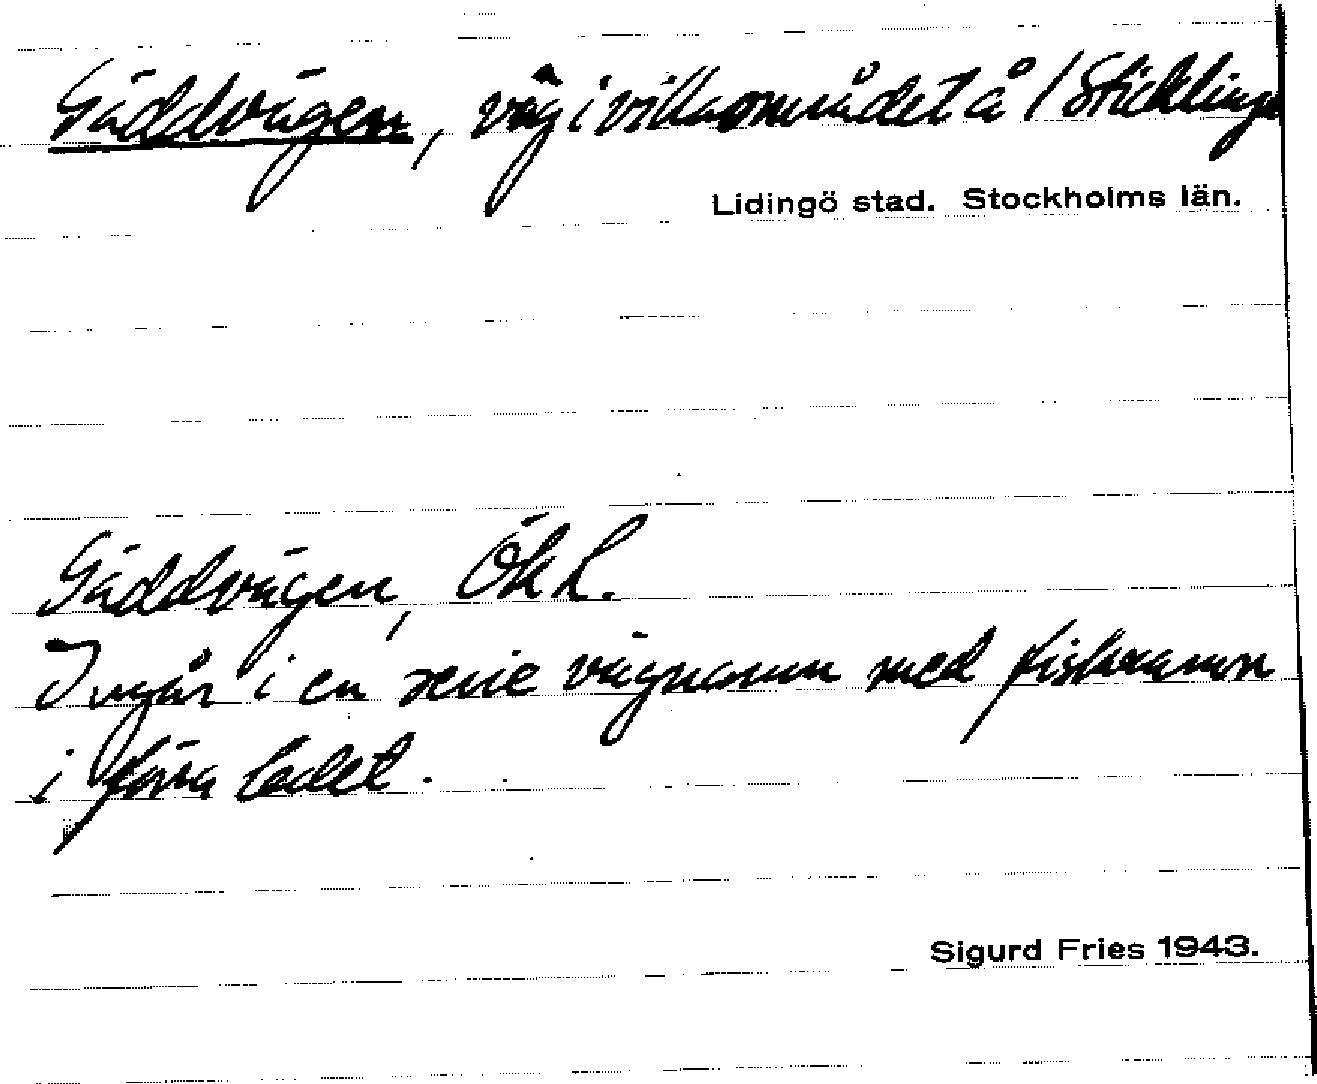 Gäddvägen, väg i villaområdet å / Sticklinge
Lidingö stad. Stockholms län.
Gäddvägen, Ök L.
Ingår i en serie vägnamn med fisknamn
i förra ledet.
Sigurd Fries 1943.